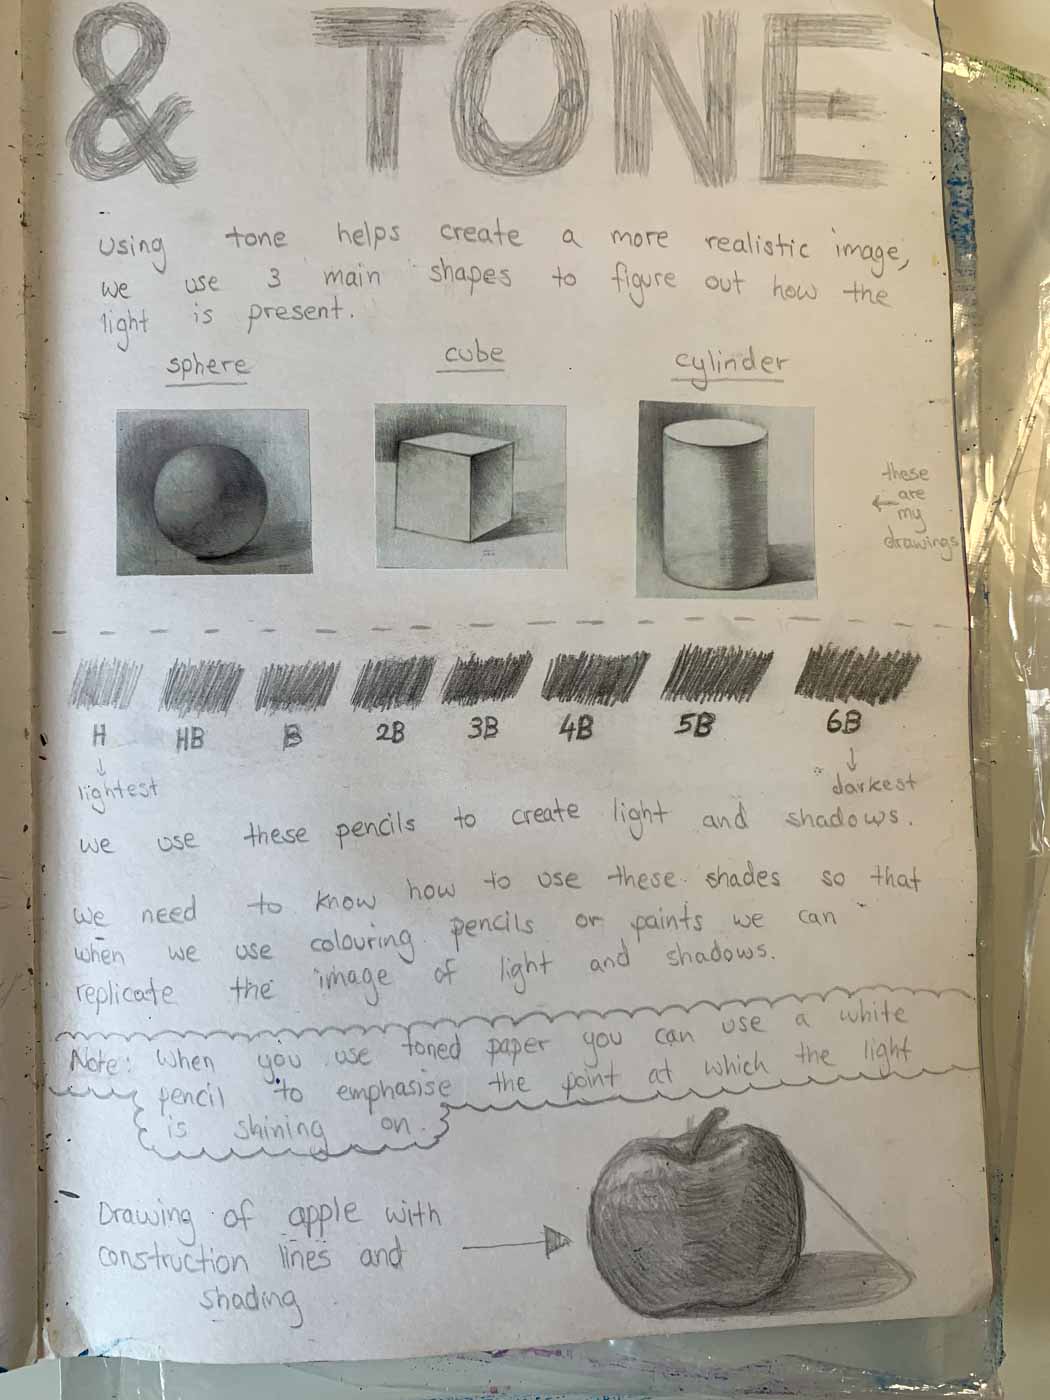 & TONE
Using tone helps create a more realistic image,
we use 3 main shapes to figure out how the
light is present.
sphere cube cylinder
these
are
my
drawings
H HB B 2B 3B 4B 5B 6B
lightest darkest
we use these pencils to create light and shadows.
We need to know how to use these shades so that
when we use colouring pencils or paints we can
replicate the image of light and shadows.
Note: When you use toned paper you can use a white
pencil to emphasise the point at which the light
is shining on.
Drawing of apple with
construction lines and
shading